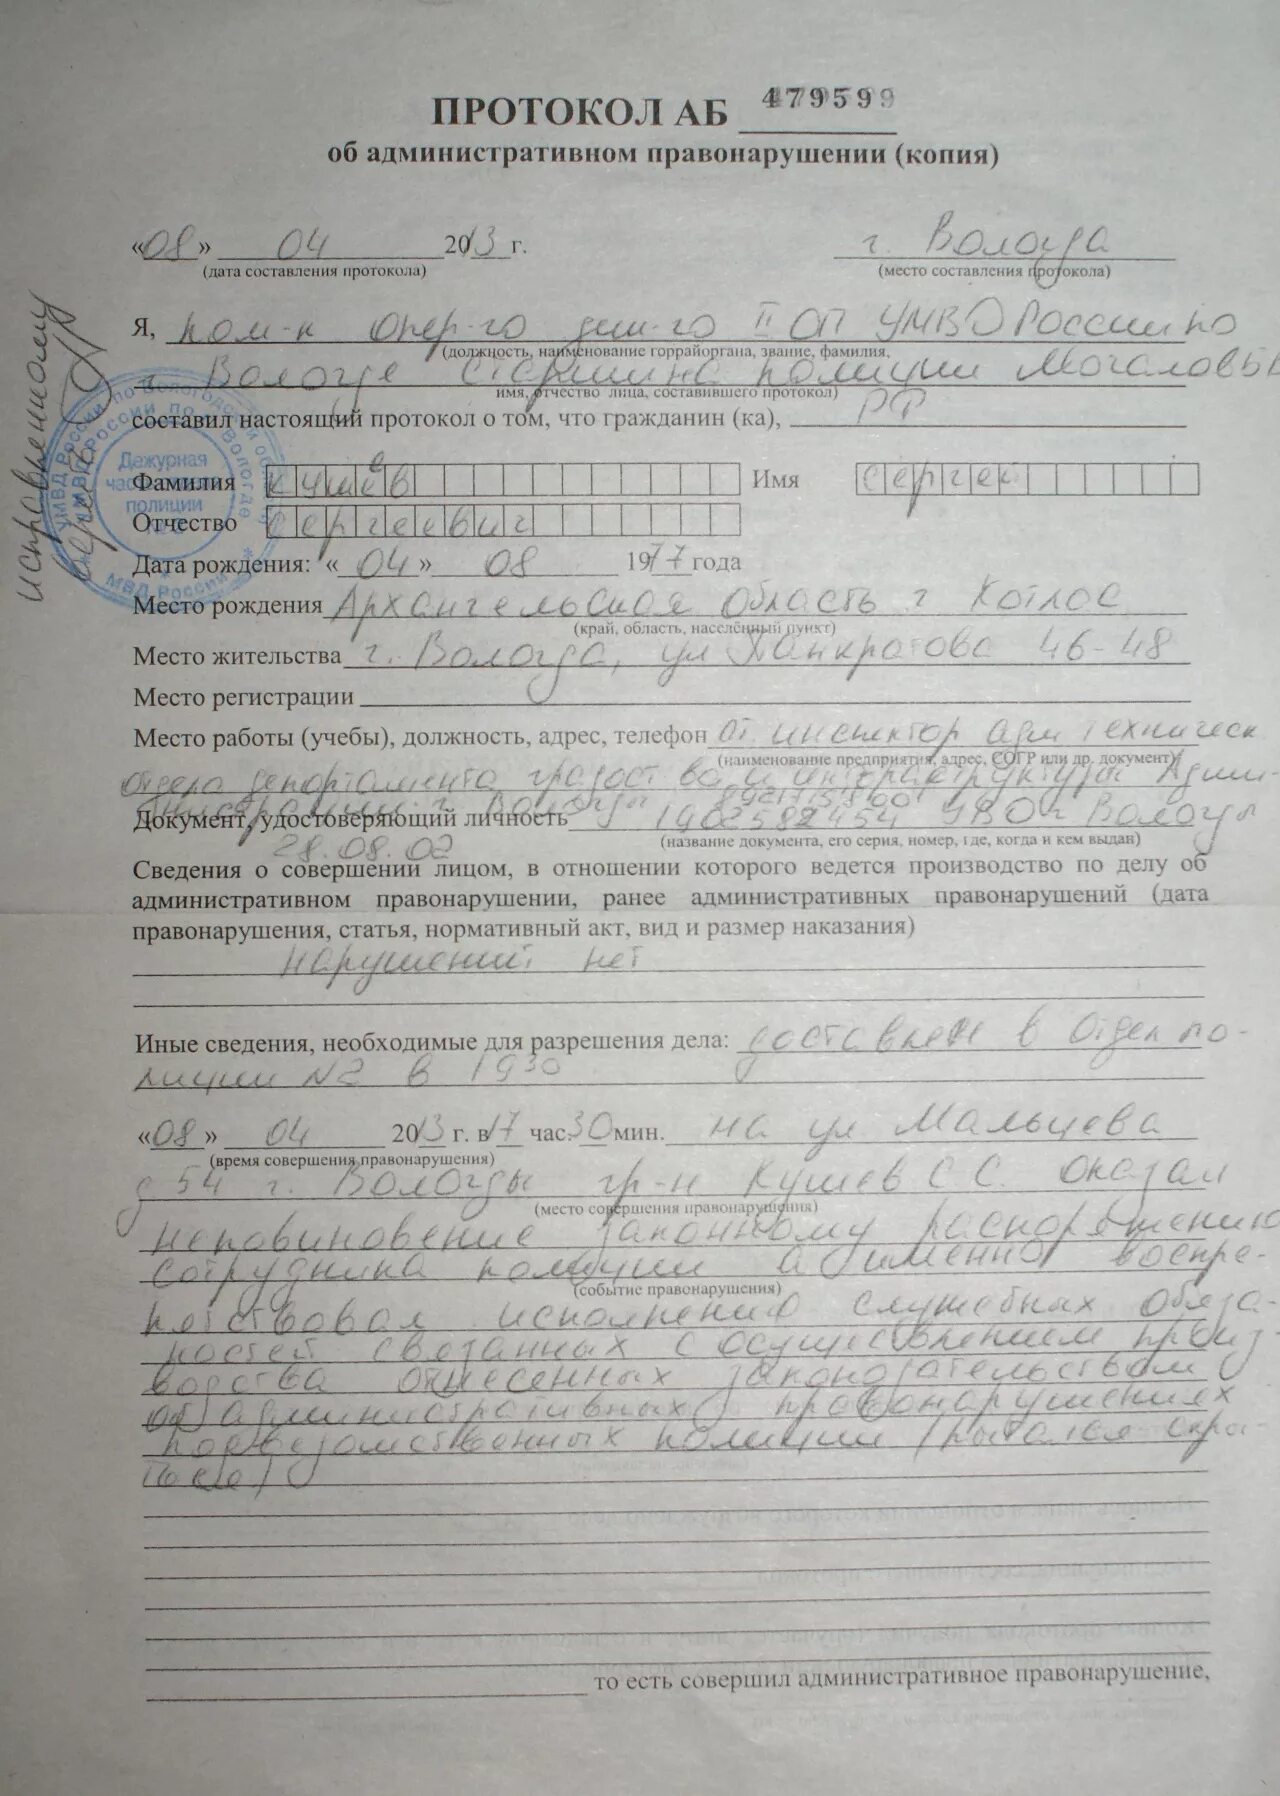 ПРОТОКОЛ АБ 479599
об административном правонарушении (копия)
«08» 04 2013 г. г. Вологда
(дата составления протокола) (место составления протокола)
Я, пом-к опер-го деж-го II ОП УМВД России по
(должность, наименование горрайоргана, звание, фамилия,
г. Вологде старшина полиции
имя, отчество лица, составившего протокол)
составил настоящий протокол о том, что гражданин (ка), РФ
исправленному
верить
Дежурная
часть
полиции
Фамилия Кушев Имя Сергей
Отчество Сергеевич
Дата рождения: «04» 08 1977 года
Место рождения Архангельская область г Котлас
(край, область, населённый пункт)
Место жительства г. Вологда, ул Панкратова 46-48
Место регистрации
Место работы (учебы), должность, адрес, телефон инспектор адм техническ
(наименование предприятия, адрес, СОГР или др. документ)
отдела департамента градост ва и инфраструктуры Адми-
нистрации г. Вологды
Документ, удостоверяющий личность 1902582454 УВД г Вологды
(название документа, его серия, номер, где, когда и кем выдан)
28.08.02
Сведения о совершении лицом, в отношении которого ведется производство по делу об
административном правонарушении, ранее административных правонарушений (дата
правонарушения, статья, нормативный акт, вид и размер наказания)
нарушений нет
Иные сведения, необходимые для разрешения дела: доставлен в Отдел по-
лиции №2 в 1930
«08» 04 2013 г. в 17 час. 30 мин. на ул Мальцева
(время совершения правонарушения)
д 54 г. Вологды гр-н Кушев С С. оказал
(место совершения правонарушения)
неповиновение законному распоряжению
сотрудника полиции а именно воспре-
(событие правонарушения)
пятствовал исполнению служебных обяза-
ностей связанных с осуществлением произ-
водства отнесенных законодательством
об административных правонарушениях
подведомственных полиции (пытался скры-
ться)
то есть совершил административное правонарушение,